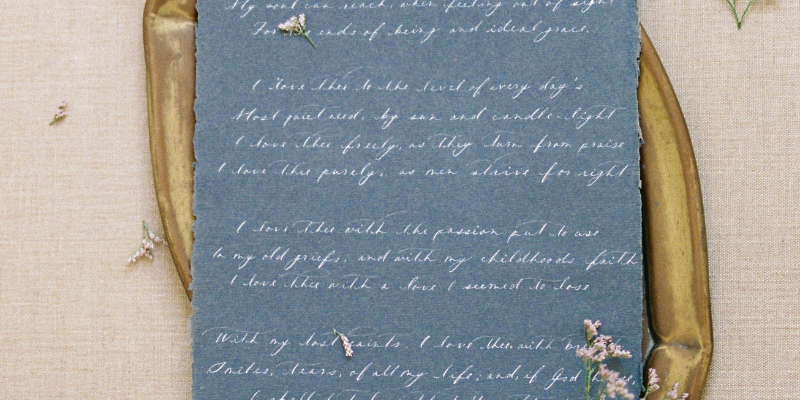 My soul can reach, when feeling out of sight
For ends of being and ideal grace.
I love thee to the level of every day's
Most quiet need, by sun and candle-light
I love thee freely, as they turn from praise
I love thee purely, as men strive for right
I love thee with the passion put to use
In my old griefs, and with my childhoods faith
I love thee with a love I seemed to lose
With my lost saints. I love thee with
Smiles, tears, of all my life; and, if God